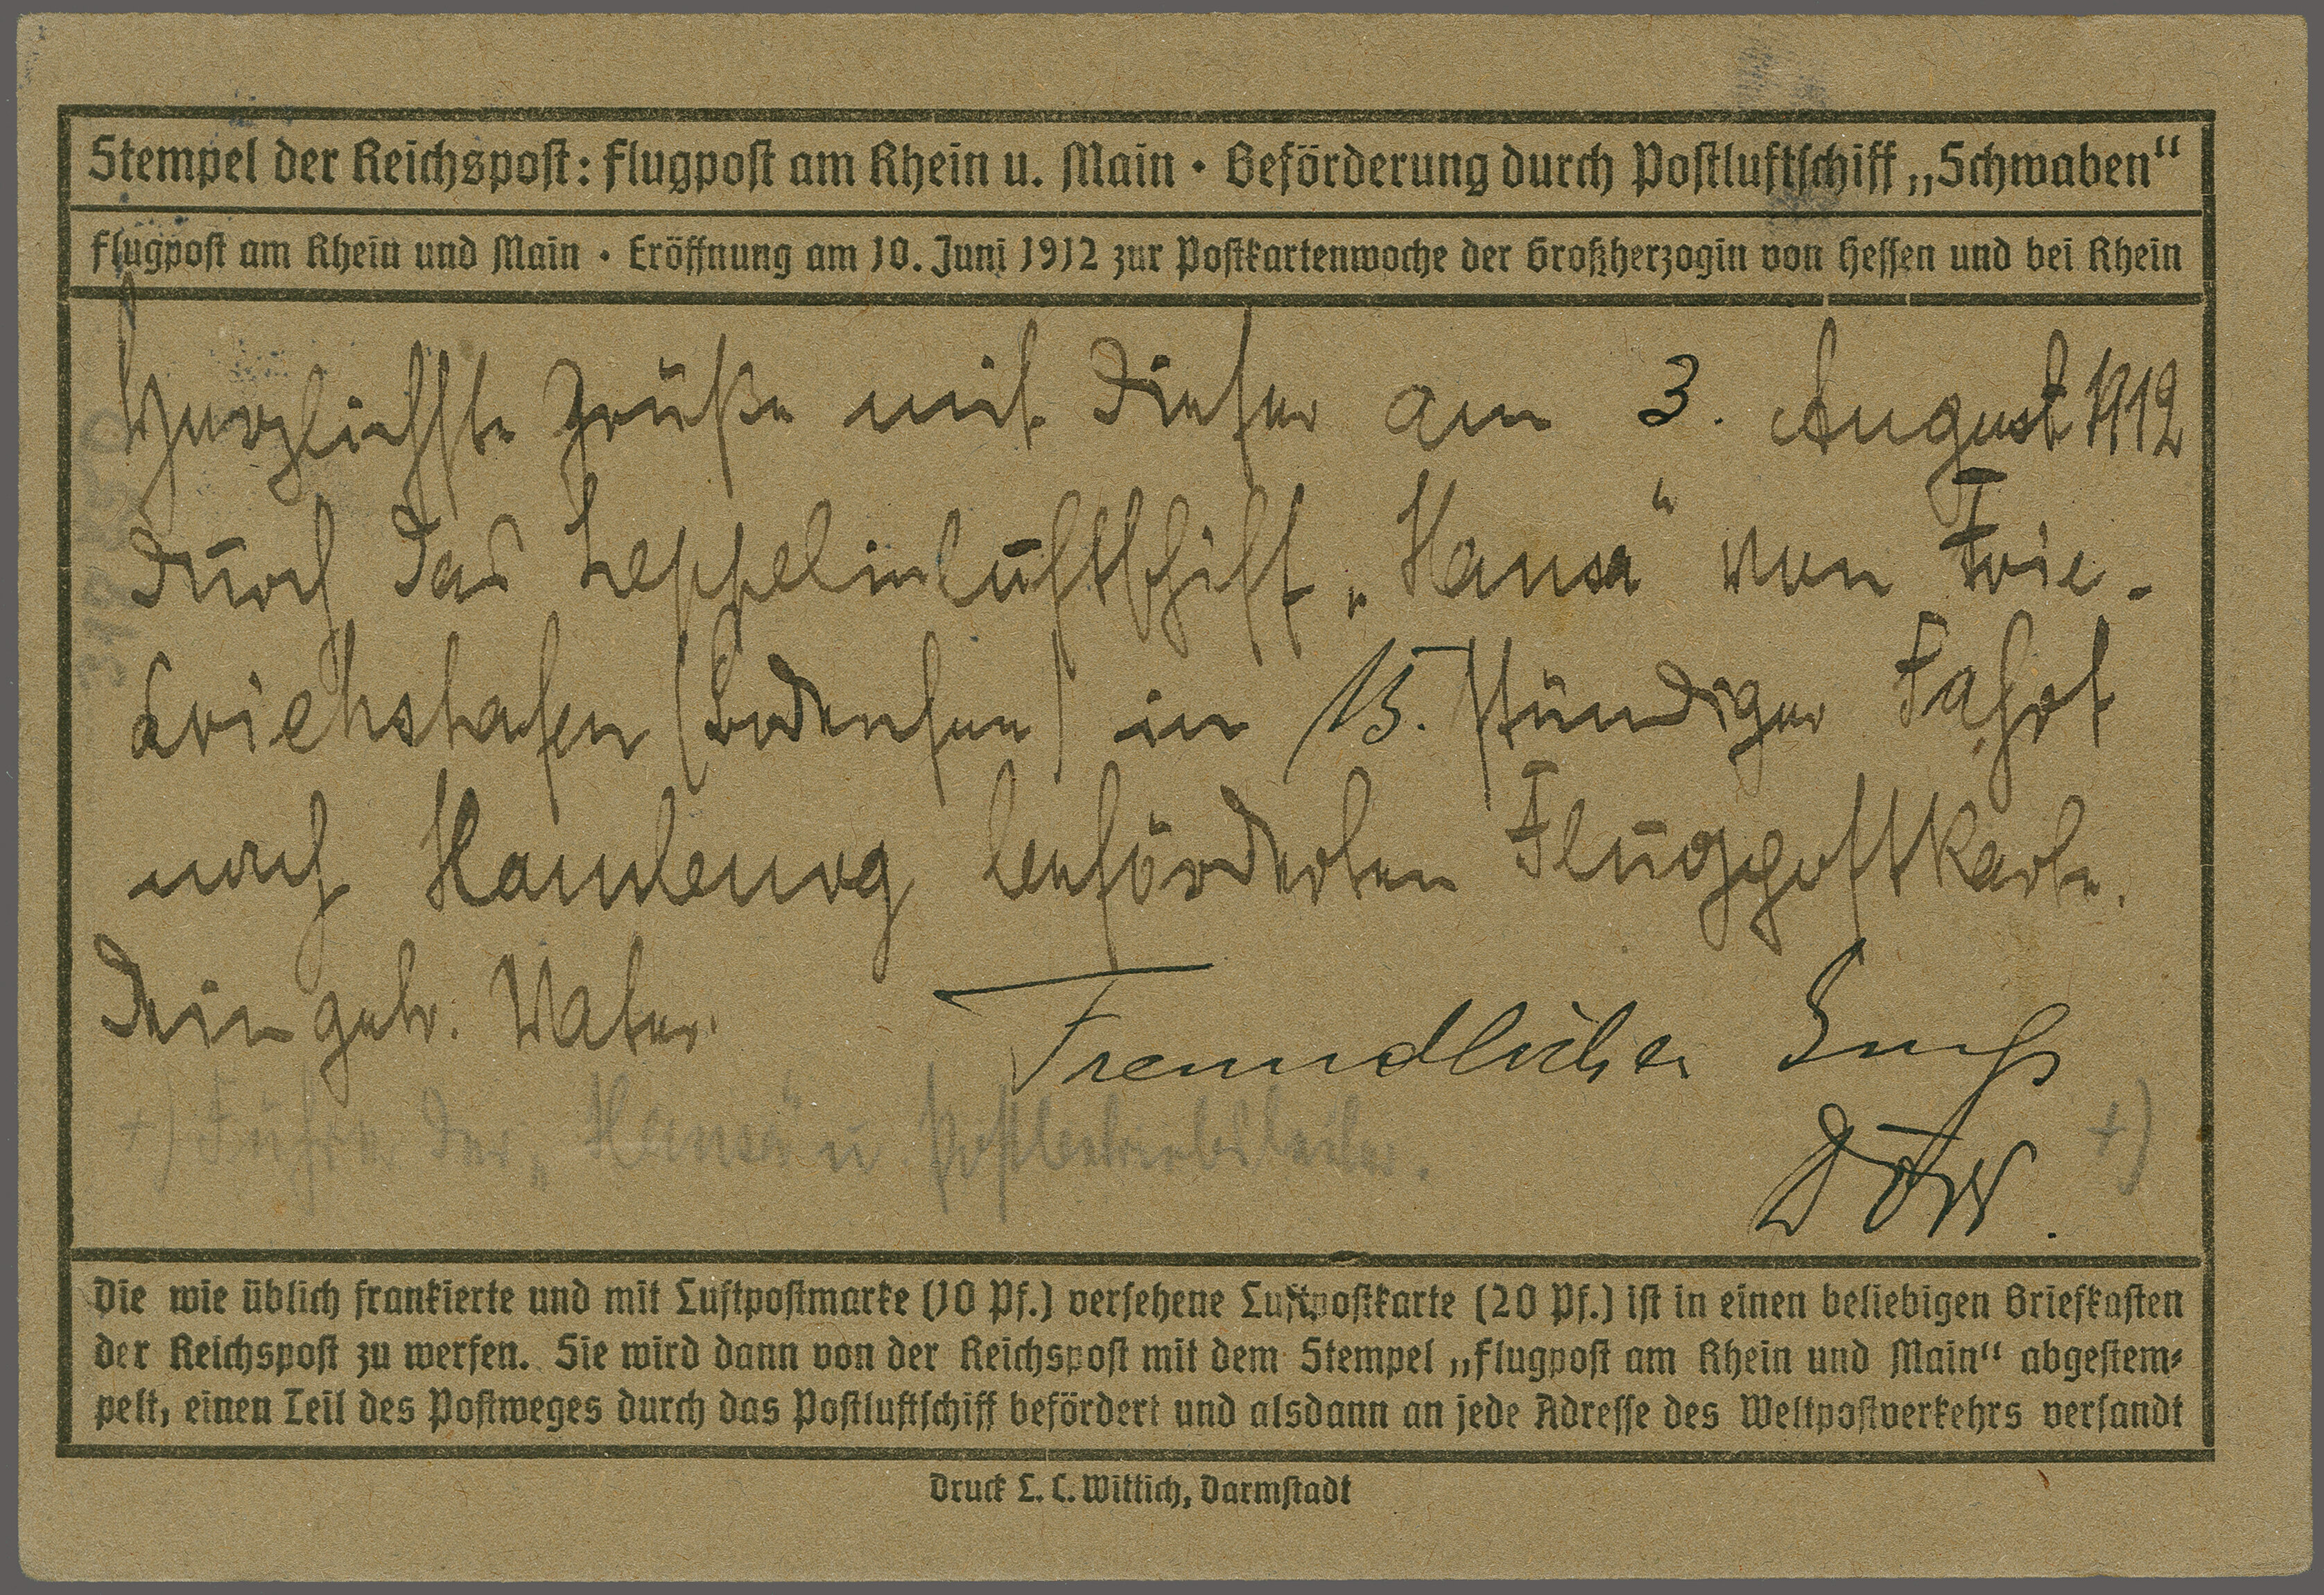 Stempel der Reichspost: Flugpost am Rhein u. Main · Beförderung durch Postluftschiff „Schwaben“
Flugpost am Rhein und Main · Eröffnung am 10. Juni 1912 zur Postkartenwoche der Großherzogin von Hessen und bei Rhein
Herzlichste Grüße mit dieser am 3. August 1912
durch das Zeppelinluftschiff „Hansa“ von Frie-
drichshafen (Bodensee) in 15. stündiger Fahrt
nach Hamburg beförderten Flugpostkarte.
Dein getr. Vater.
Freundlichen Gruß
Dörr. +)
+) Führer der „Hansa“ u. Postbetriebsleiter.
Die wie üblich frankierte und mit Luftpostmarke (10 Pf.) versehene Luftpostkarte (20 Pf.) ist in einen beliebigen Briefkasten
der Reichspost zu werfen. Sie wird dann von der Reichspost mit dem Stempel „Flugpost am Rhein und Main“ abgestem-
pelt, einen Teil des Postweges durch das Postluftschiff befördert und alsdann an jede Adresse des Weltpostverkehrs versandt
Druck L. C. Wittich, Darmstadt